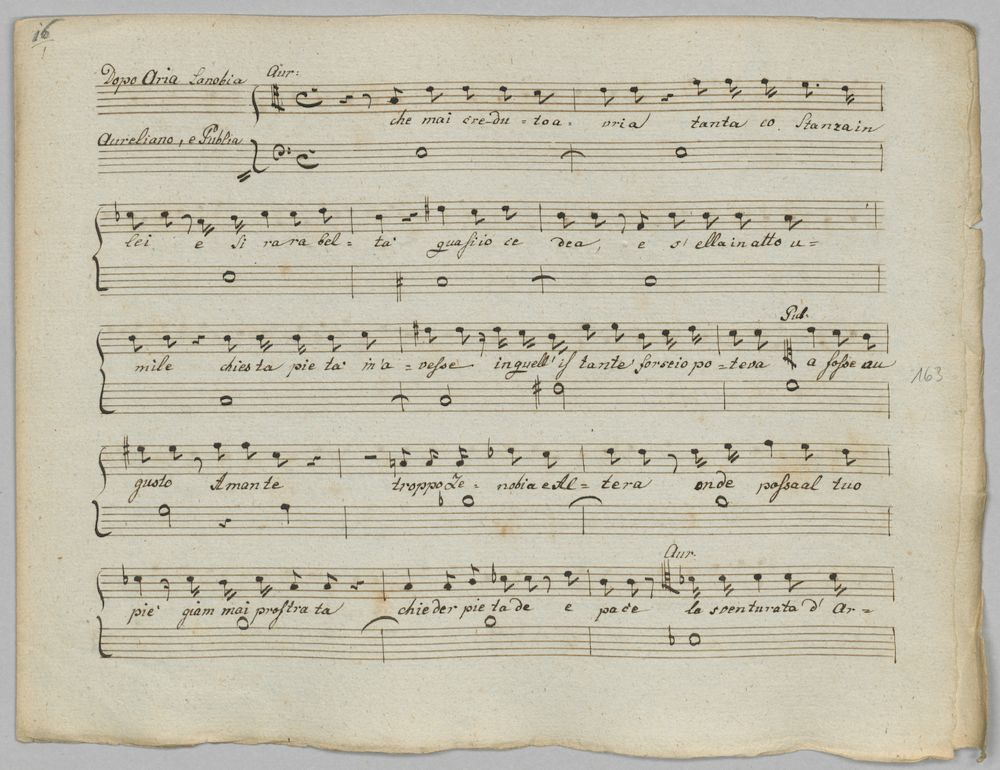 16
1
Dopo Aria Zanobia Aur:
che mai cre-du-to a-vria tanta co. Stanza in
Aureliano, e Publia
lei e si rara bel-ta' quasi io ce dea, e s'ella in atto u=
mile chiesta pieta' m'a-vesse in quell' istante forse io po-teva Pub. a fosse au
163
gusto Amante troppo Ze-nobia e Al-tera onde possa al tuo
pie' giam mai prostrata chieder pietade e pace Aur. la sventurata d' Ar=